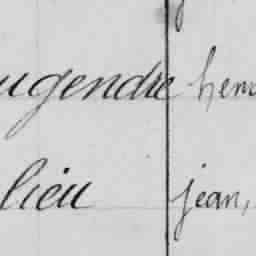 ugendre hen
lieu jean,